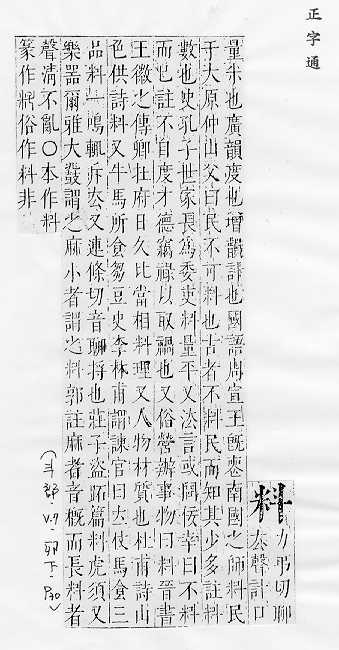 正字通
料 力弔切聊
去聲計口
量米也廣韻度也增韻計也國語周宣王旣喪南國之師料民
于大原仲山父曰民不可料也古者不料民而知其少多註料
數也史孔子世家長爲委吏料量平又法言或問侯幸曰不料
而已註不自度才德竊祿以取禍也又俗營辦事物曰料晉書
王徽之傳卿在府日久比當相料理又人物材質也杜甫詩山
色供詩料又牛馬所食芻豆史李林甫謂諫官曰立仗馬食三
品料一鳴輒斥去又連條切音聊捋也莊子盜跖篇料虎須又
樂器爾雅大鼗謂之麻小者謂之料郭註麻者音槪而長料者
聲清不亂○本作料
篆作俗作料非
(斗部 V.7-卯下-P20)